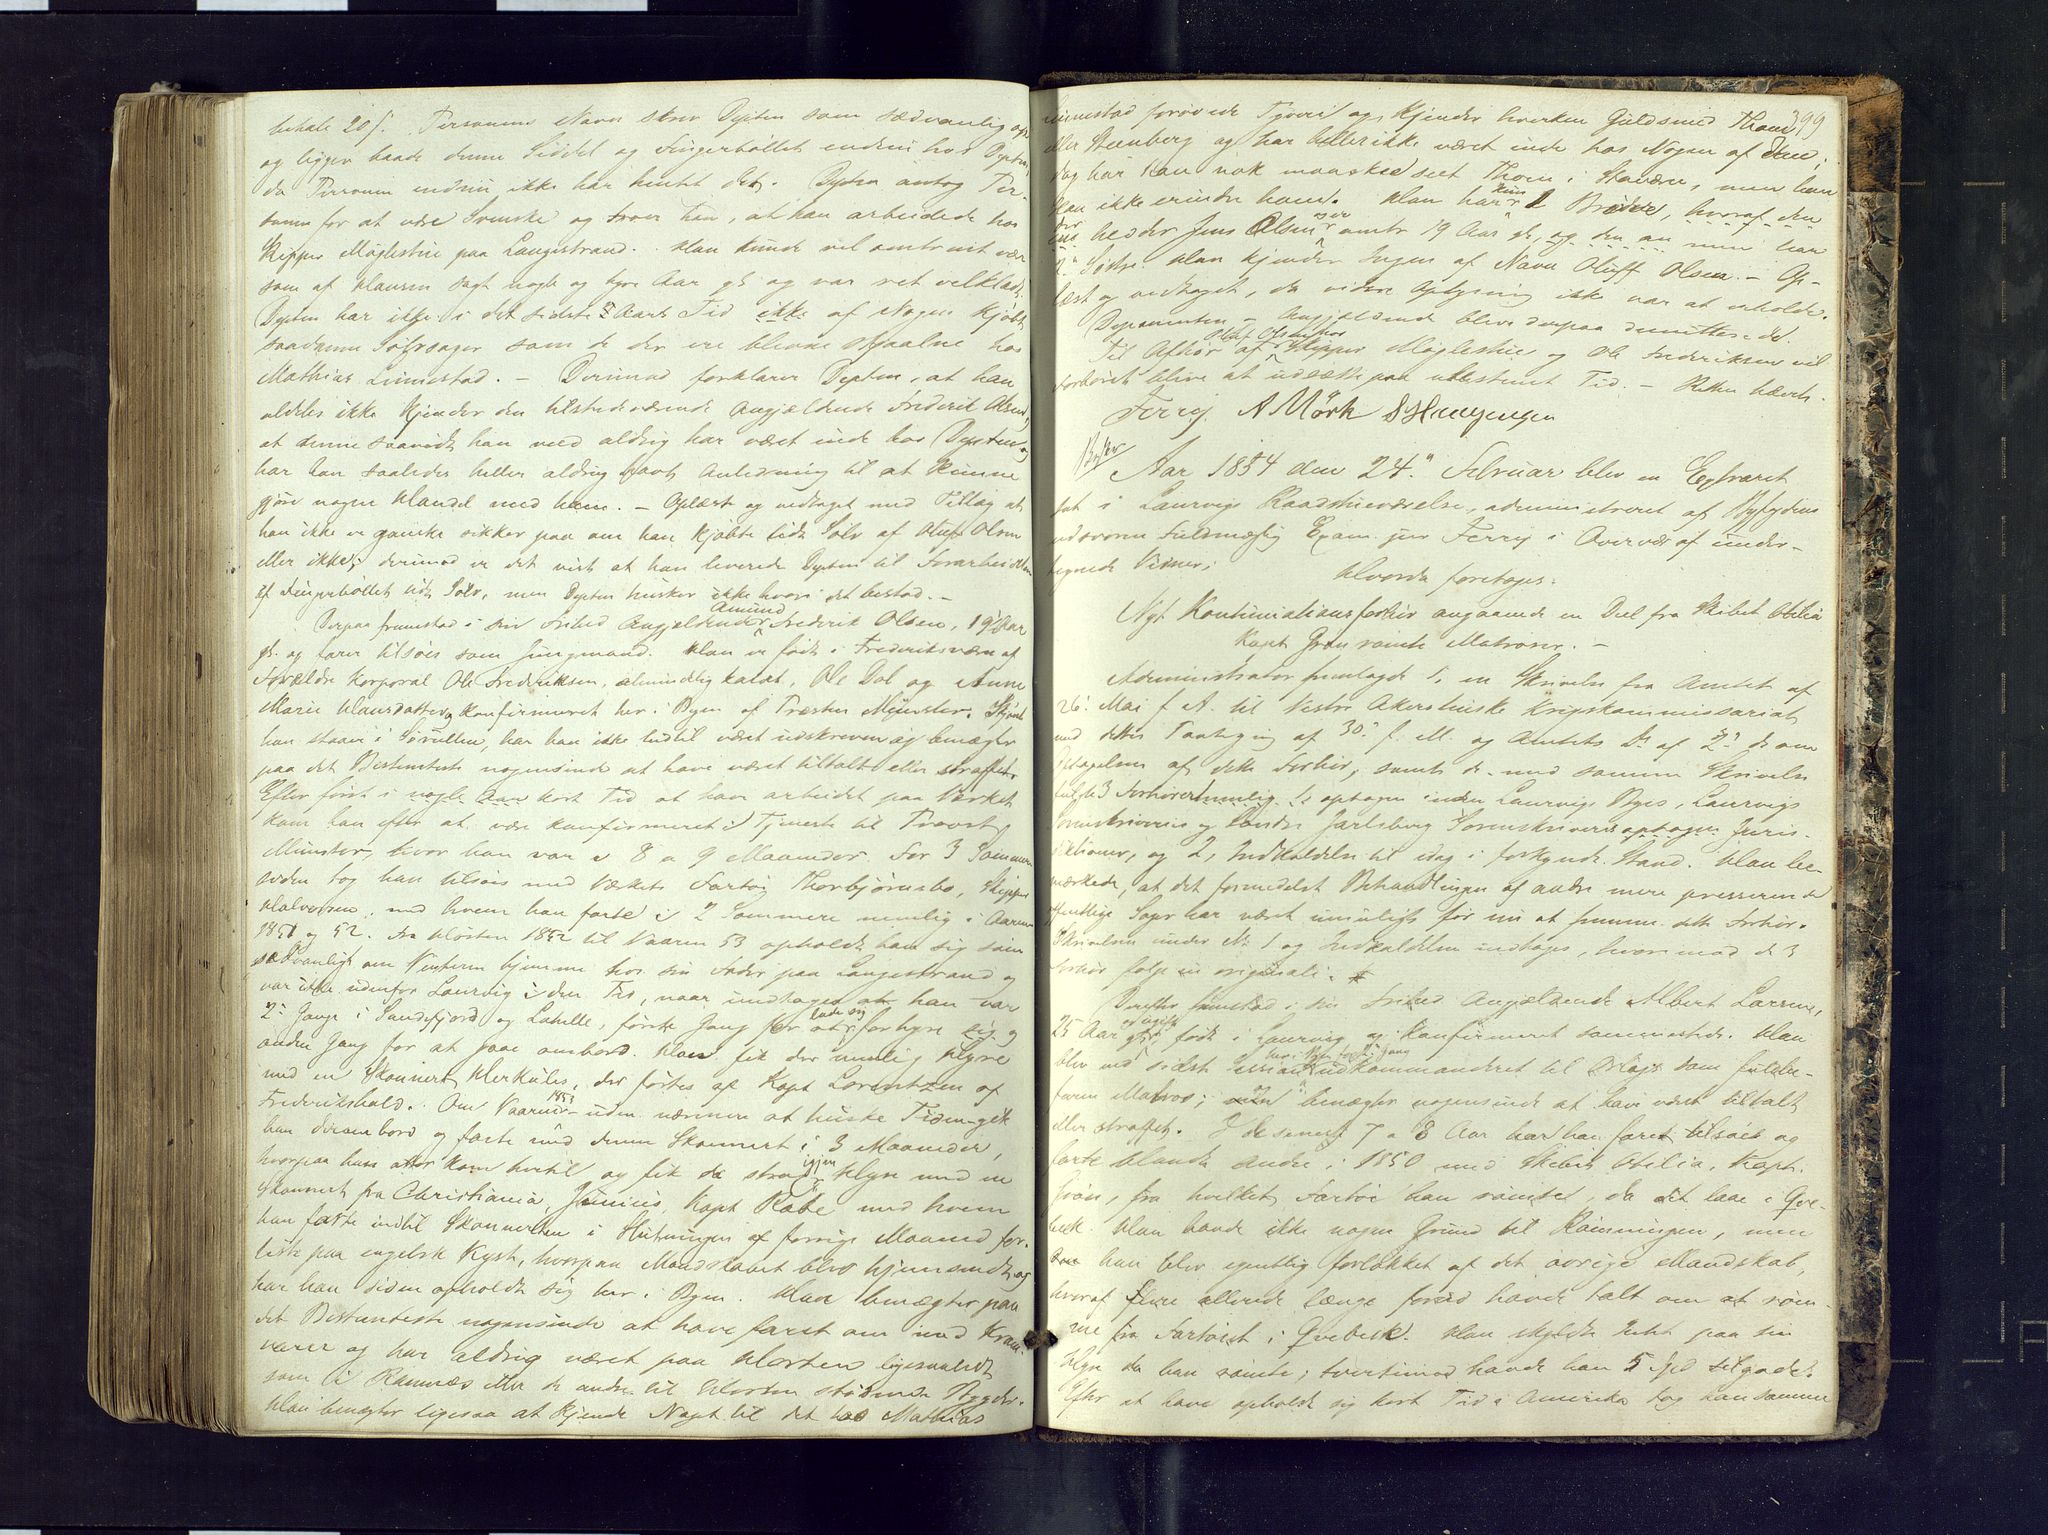 betale 20 f. Personens Navn skrev Depten som sædvanlig op
og ligger baade denne Seddel og Fingerbøllet endnu hos Depten,
da Personen endnu ikke har hentet det. Depten antog Per-
sonen for at være Svenske og troer han, at han arbeidede hos
Skipper Møglestue paa Langestrand. Han kunde vel omtrent være
som af Hansen sagt nogle og tyve Aar gl. og var ret velklædt.
Depten har ikke i det sidste Aars Tid ikke af Nogen kjøbt
saadanne Sølvsager som de der ere blevne stjaalne hos
Mathias Linnestad. – Derimod forklarer Depten, at han
aldeles ikke kjender den tilstedeværende Angjældende Frederik Olsen,
at denne saavidt han veed aldrig har været inde hos Depten og
har han saaledes heller aldrig havt Anledning til at kunne
gjøre nogen Handel med ham. – Oplæst og vedtaget med Tillæg at
han ikke er ganske sikker paa om han kjøbte lidt Sølv af Oluf Olsen
eller ikke; derimod er det vist at han leverede Depten til Forarbeidelsen
af Fingerbøllet lidt Sølv, men Depten husker ikke hvori det bestod. –
Derpaa fremstod i sin Frihed Angjældende Amund Frederik Olsen, 19 Aar
gl. og farer tilsøes som Jungmand. Han er født i Frederiksværn af
Forældre Korporal Ole Frederiksen, almindelig kaldt, Ole Dal og Anne
Marie Hansdatter, konfirmeret her i Byen af Præsten Münster. Skjøndt
han staaer i Sørullen, har han ikke hidtil været udskreven og benægter
paa det Bestemteste nogensinde at have været tiltalt eller straffet.
Efter først i nogle Aar kort Tid at have arbeidet paa Værket
kom han efter at være konfirmeret i Tjeneste til Provst
Münster, hvor han var i 8 a 9 Maaneder. For 3 Sommere
siden tog han tilsøes med Værkets Fartøi Thorbjørnsbo, Skipper
Halvorsen, med hvem han farte i 2 Sommere nemlig i Aarene
1851 og 52. Fra Høsten 1852 til Vaaren 53 opholdt han sig som
sædvanligt om Vinteren hjemme hos sin Fader paa Langestrand og
var ikke udenfor Laurvig i den Tid, naar undtages at han var
2 Gange i Sandefjord og Lahelle, første Gang for at lade sig forhyre sig og
anden Gang for at gaae ombord. Han fik der nemlig Hyre
med en Skonnert Herkules, der førtes af Kapt Lorentzen af
Frederikshald. Om Vaaren 1853 – uden nærmere at huske Tiden – gik
han derombord og farte med denne Skonnert i 3 Maaneder,
hvorpaa han atter kom hertil og fik da strax igjen Hyre med en
Skonnert fra Christiania, Junius, Kapt Rabe med hvem
han farte indtil Skonnerten i Slutningen af forrige Maaned for-
liste paa engelsk Kyst, hvorpaa Mandskabet blev hjemsendt, og
har han siden opholdt sig her i Byen. Han benægter paa
det Bestemteste nogensinde at have faret om med Kram-
varer og har aldrig været paa Horten ligesaalidt
som i Ramnæs eller de andre til Horten stødende Bygder.
Han benægter ligesaa at kjende Noget til det hos Mathias
399
Linnestad forøvede Tyveri og kjender hverken Guldsmed Thom
eller Steenberg og har heller ikke været inde hos Nogen af dem;
dog har han nok maaskee seet Thom i Staværn, men han
kan ikke erindre ham. Han har kun 1 Broder, hvoraf den
der heder Jens Olsen er omtr 19 Aar gl, og den an men han
2 Søstre. Han kjender Ingen af Navn Oluff Olsen. – Op-
læst og vedtaget, da videre Oplysning ikke var at erholde.
Deponenten – Angjældende bleve derpaa demitterede.
Til Afhør af Skipper Møglestue og Ole Frederiksen vil
Forhøret blive at udsætte paa ubestemt Tid. – Retten hævet.
Ferry. A Mörk S Haugengen
Aar 1854 den 24 Februar blev en Extraret
sat i Laurvigs Raadstueværelse, administreret af Byfogdens
edsvorne Fuldmægtig Exam. jur Ferry i Overvær af under-
tegnede Vidner;
Hvorda foretoges:
Nyt Kontinuationsforhør angaaende en Deel fra Skibet Otilia
Kapt Grøn rømte Matroser. –
Administrator fremlagde 1, en Skrivelse fra Amtet af
26 Mai f. A. til Vestre Akershuske Krigskommissariat
med dettes Paategning af 30 f. M. og Amtets Do af 2 ds om
Optagelsen af dette Forhør, samt de med samme Skrivelse
fulgte 3 Forhører nemlig optagne inden Laurvigs Byes, Laurvigs
Sorenskriveries og Nordre Jarlsberg Sorenskriveries optagne Juris-
diktioner, og 2, Indkaldelse til idag i forkyndt Stand. Han be-
mærkede, at det formedelst Behandlingen af andre mere presserende
offentlige Sager har været umuligt før nu at fremme dette Forhør.
Skrivelsen under No 1 og Indkaldelsen indtages, hvorimod de 3
Forhør følge in originali.
Derefter fremstod i sin Frihed Angjældende Albert Larsen,
25 Aar gl. født i Laurvig og konfirmeret sammesteds. Han
blev ved sidste Session her i Byen første Gang udkommanderet til Orlogs som fuldbe-
faren Matros; benægter nogensinde at have været tiltalt
eller straffet. I de senere 7 a 8 Aar har han faret tilsøes og
farte blandt Andre i 1850 med Skibet Otilia, Kapt.
Grøn, fra hvilket Fartøi han rømte, da det laae i Qve-
beck. Han havde ikke nogen Grund til Rømningen, men
han blev egentlig forlokket af det øvrige Mandskab,
hvoraf flere allerede længe forud havde talt om at røm-
me fra Fartøiet i Qvebeck. Han skyldte Intet paa sin
Hyre da han rømte; tvertimod havde han 5 Spd tilgode.
Efter at have opholdt sig kort Tid i Amerika tog han samme